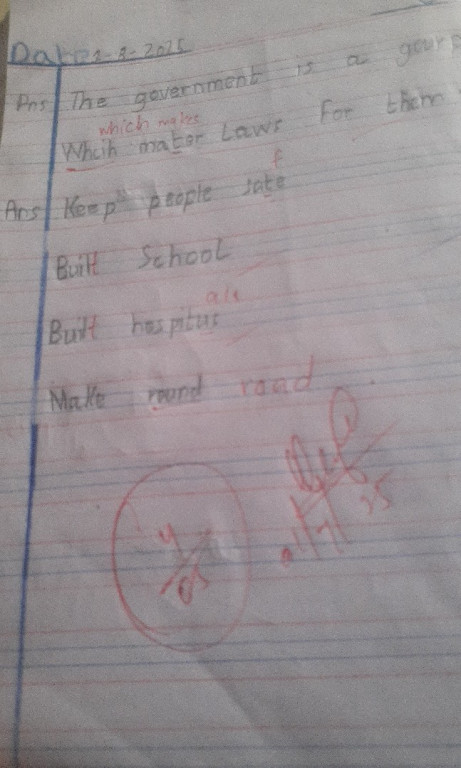 Date 1-8-2025
Ans The government is a gourp
which makes
Whcih mater Laws For them
f
Ans Keep people sate
Built School
als
Built hospitus
Make round road
4/05